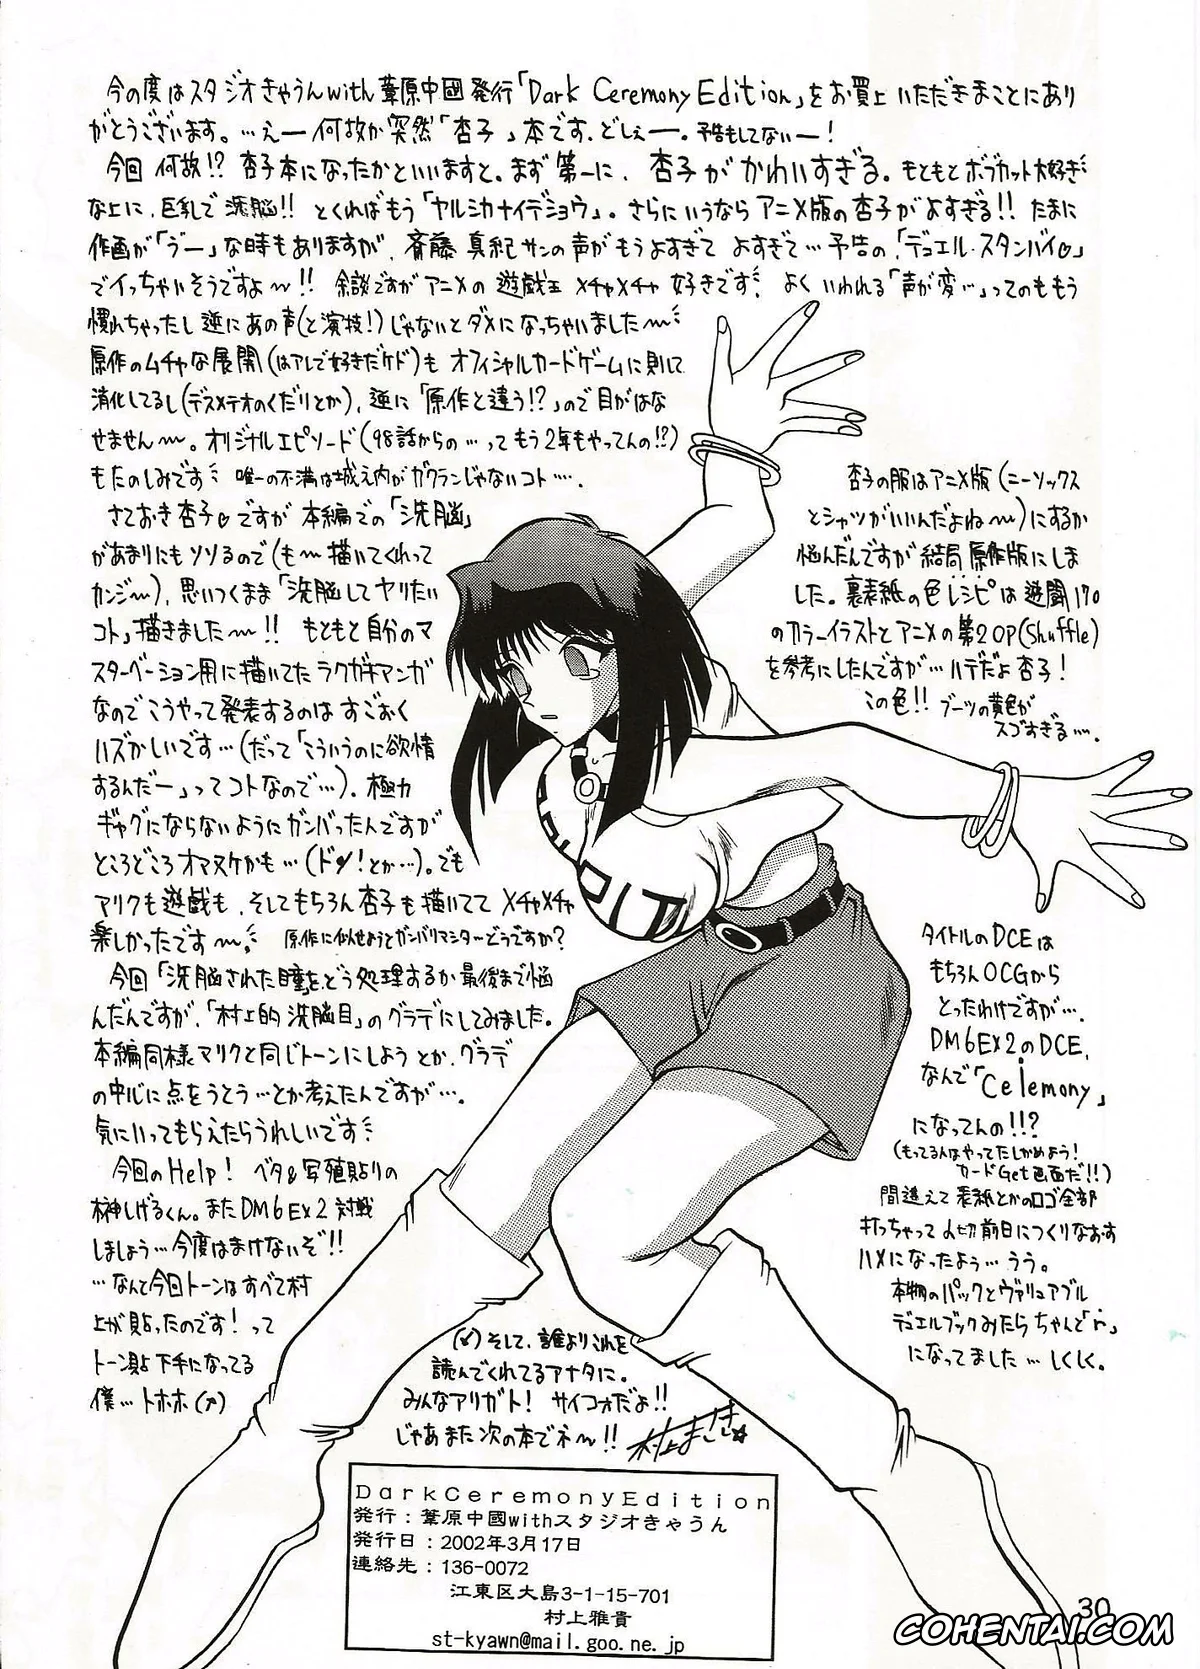 今の度はスタジオきゃうんwith葦原中國発行「Dark Ceremony Edition」をお買上いただきまことにあり
がとうございます。…えー何故か突然「杏子」本です。どしぇー。予告もしてないー!
今回何故!?杏子本になったかといいますと。まず第一に、杏子がかわいすぎる。もともとボブカット大好き
な上に、巨乳で洗脳!!とくればもう「ヤルシカナイデショウ」。さらにいうならアニメ版の杏子がよすぎる!!たまに
作画が「うー」な時もありますが、斉藤真紀サンの声がもうよすぎてよすぎて…予告の、「デュエル・スタンバイ♡」
でイっちゃいそうですよ〜!!余談ですがアニメの遊戯王メチャメチャ好きです。よくいわれる「声が変…」ってのももう
慣れちゃったし逆にあの声(と演技!)じゃないとダメになっちゃいました〜
原作のムチャな展開(はアレで好きだケド)もオフィシャルカードゲームに則して
消化してるし(デスメテオのくだりとか)、逆に「原作と違う!?」ので目がはな
せません〜。オリジナルエピソード(98話からの…ってもう2年もやってんの!?)
もたのしみです 唯一の不満は城之内がガクランじゃないコト…。
さておき杏子♡ですが本編での「洗脳」
があまりにもソソるので(も〜描いてくれって
カンジ〜)、思いつくまま「洗脳してヤりたい
コト」描きました〜!!もともと自分のマ
スターベーション用に描いてたラクガキマンガ
なのでこうやって発表するのはすごおく
ハズかしいです…(だって「こういうのに欲情
するんだー」ってコトなので…)。極力
ギャグにならないようにガンバったんですが
ところどころオマヌケかも…(ドン!とか…)。でも
マリクも遊戯も、そしてもちろん杏子も描いてて メチャメチャ
楽しかったです〜。原作に似せようとガンバリマシターどうですか?
今回「洗脳された瞳」をどう処理するか最後まで悩
んだんですが、「村上的洗脳目」のグラデにしてみました。
本編同様マリクと同じトーンにしようとか、グラデ
の中心に点をうとう…とか考えたんですが…。
気にいってもらえたらうれしいです
今回のHelp! ベタ&写殖貼りの
榊しげるくん。またDM6EX2対戦
しましょう…今度はまけないぞ!!
…なんと今回トーンはすべて村
上が貼ったのです!って
トーン貼下手になってる
僕…トホホ
杏子の服はアニメ版(ニーソックス
とシャツがいいんだよね〜)にするか
悩んだんですが結局原作版にしま
した。裏表紙の色レシピは遊闘170
のカラーイラストとアニメの第2OP(Shuffle)
を参考にしたんですが…ハデだよ杏子!
この色!!ブーツの黄色が
スゴすぎる…。
タイトルのDCEは
もちろんOCGから
とったわけですが…、
DM6EX2のDCE、
なんで「Celemony」
になってんの!!?
(もってる人はやってたしかめよう!
カードGet画面だ!!)
間違えて表紙とかのロゴ全部
打っちゃって〆切前日につくりなおす
ハメになったよぅ…うう。
本物のパックとヴァリュアブル
デュエルブックみたらちゃんと「r」
になってました…しくしく。
そして、誰よりこれを
読んでくれてるアナタに。
みんなアリガト!サイコォだよ!!
じゃあまた次の本でネ〜!!
村上まさき
DarkCeremonyEdition
発行:葦原中國withスタジオきゃうん
発行日:2002年3月17日
連絡先:136-0072
江東区大島3-1-15-701
村上雅貴
st-kyawn@mail.goo.ne.jp
30
COHENTAI.COM